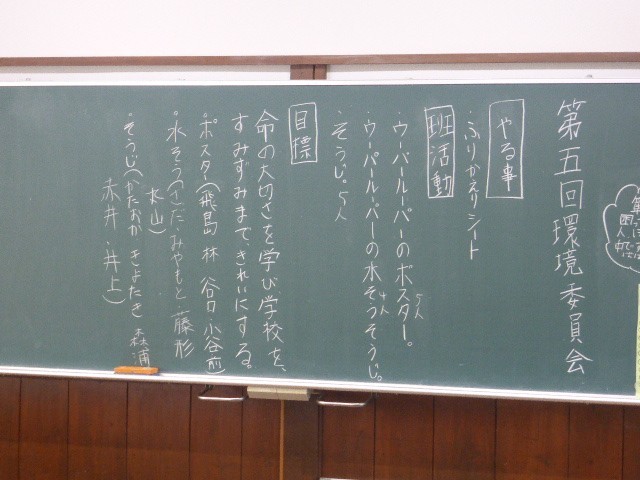 第五回環境委員会
やる事
・ふりかえりシート
班活動
・ウーパールーパーのポスター。5人
・ウーパールーパーの水そうそうじ。4人
・そうじ。5人
目標
命の大切さを学び学校を、
すみずみまで、きれいにする。
・ポスター(飛島 林 谷口 小谷前)
・水そう(さた、みやもと 藤形
丸山)
・そうじ(かたおか きよたき 森浦
赤井 井上)